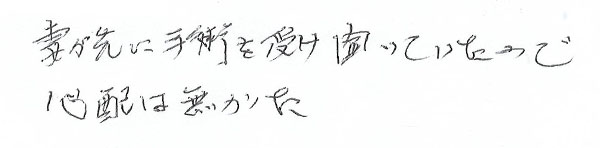 妻が先に手術を受け聞いていたので
心配は無かった